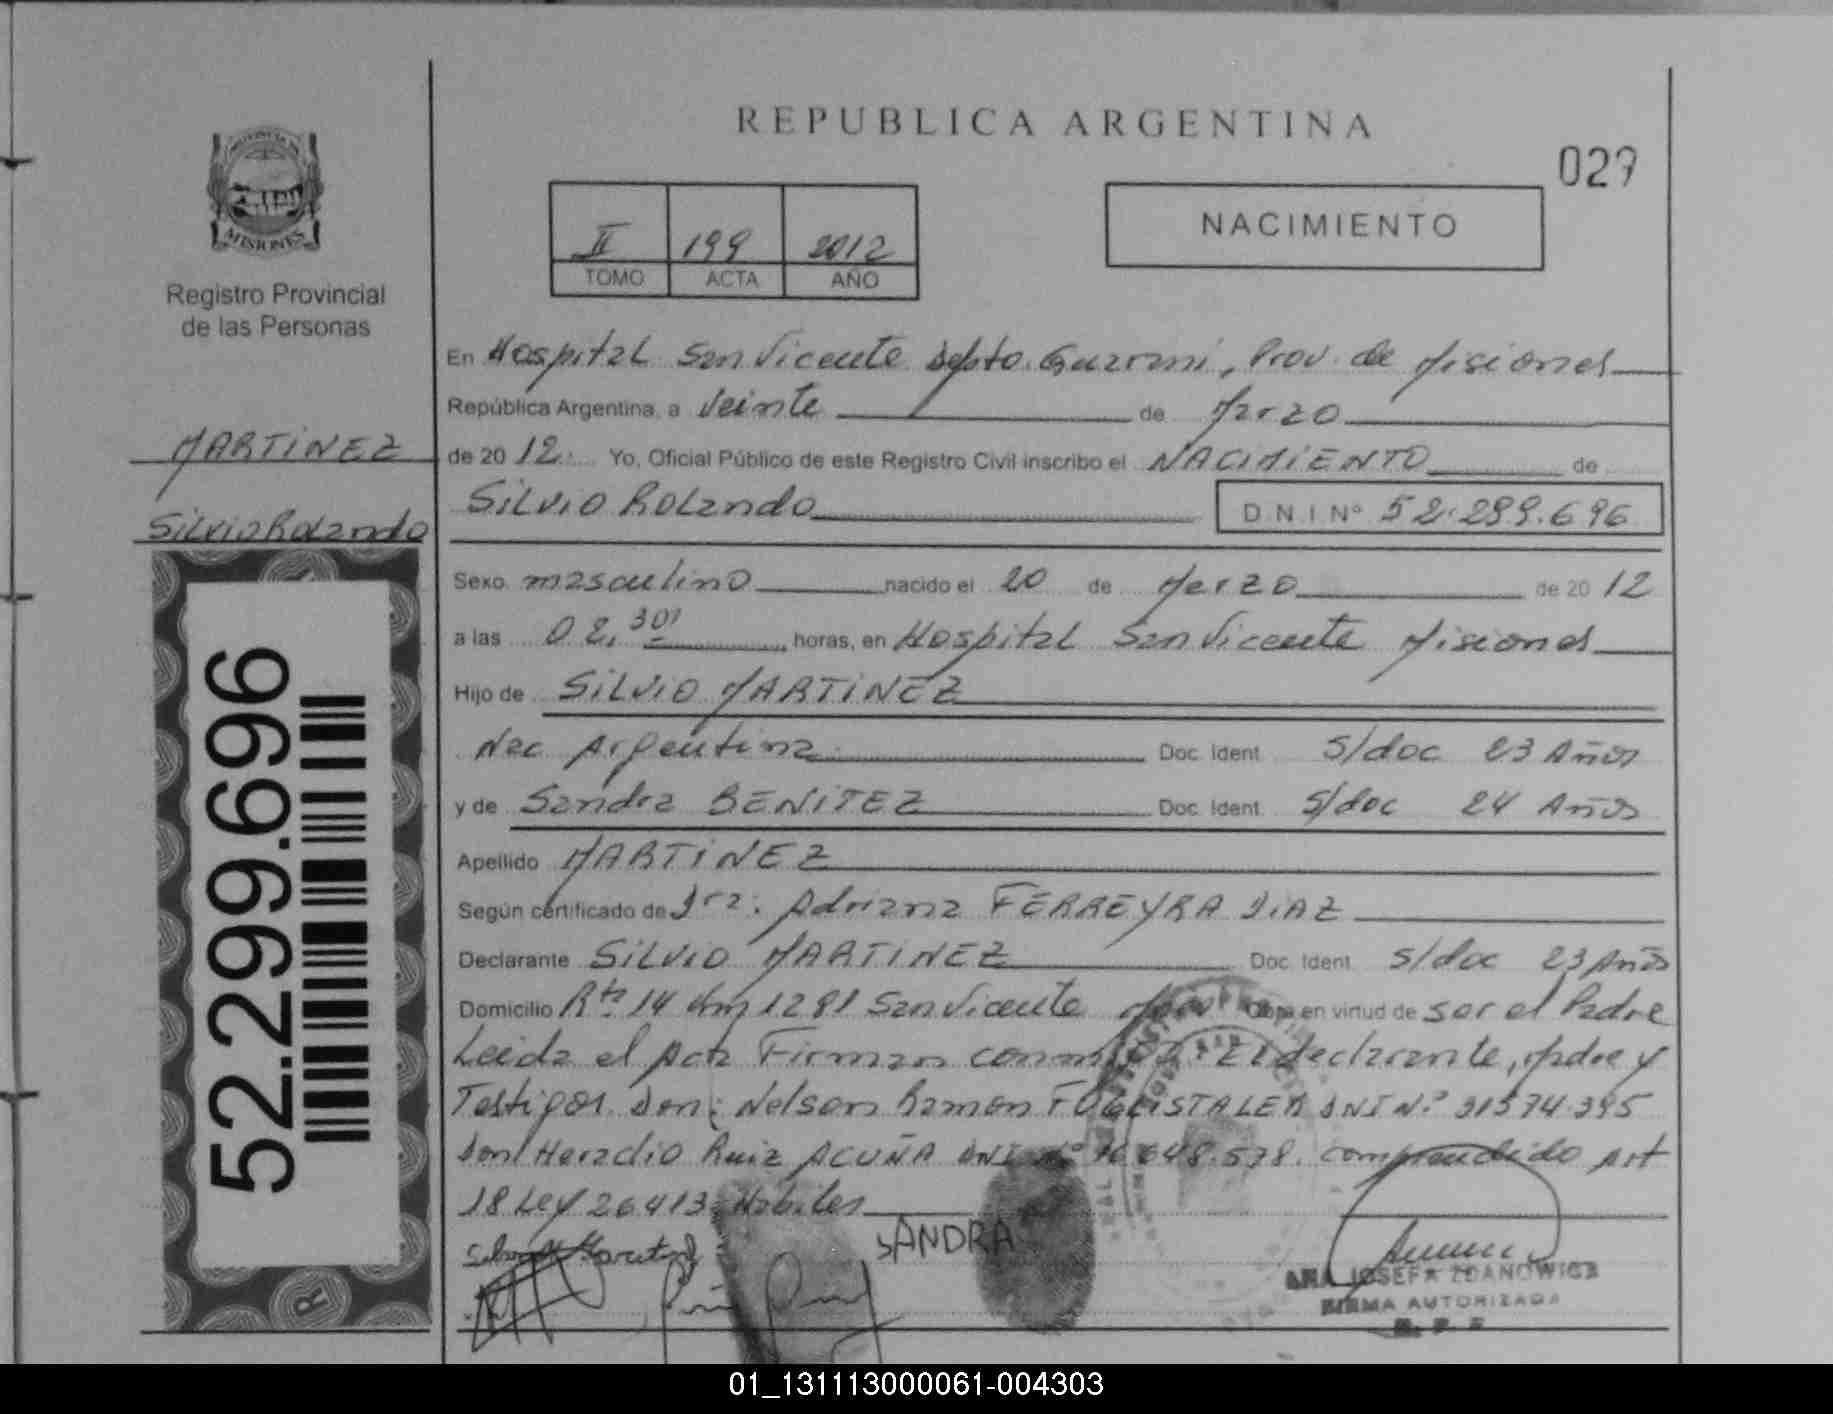 REPUBLICA ARGENTINA
029
PROVINCIA
MISIONES
Registro Provincial
de las Personas
MARTINEZ
Silvio Rolando
52.299.696
R
II 199 2012
TOMO ACTA AÑO
NACIMIENTO
En Hospital San Vicente Depto. Guarani, Prov. de Misiones
República Argentina, a Veinte de Marzo
de 2012. Yo, Oficial Público de este Registro Civil inscribo el NACIMIENTO de
Silvio Rolando D.N.I Nº 52.299.696
Sexo masculino nacido el 20 de Marzo de 2012
a las 02,30' horas, en Hospital San Vicente Misiones
Hijo de SILVIO MARTINEZ
Nac Argentina Doc. Ident. S/doc 23 Años
y de Sandra BENITEZ Doc. Ident. S/doc 24 Años
Apellido MARTINEZ
Según certificado de Dra: Adriana FERREYRA DIAZ
Declarante SILVIO MARTINEZ Doc. Ident. S/doc 23 Años
Domicilio Rta 14 Km 1281 San Vicente Obra en virtud de ser el Padre
Leida el Acta Firman El declarante, Madre y
Testigos Don: Nelson Ramon DNI N.º 31574.395
Don Heradio Ruiz ACUÑA DNI Nº 16.648.578. comprendido Art
18 Ley 26413 Habiles
SANDRA
ANA JOSEFA ZDANOWICZ
FIRMA AUTORIZADA
01_131113000061-004303